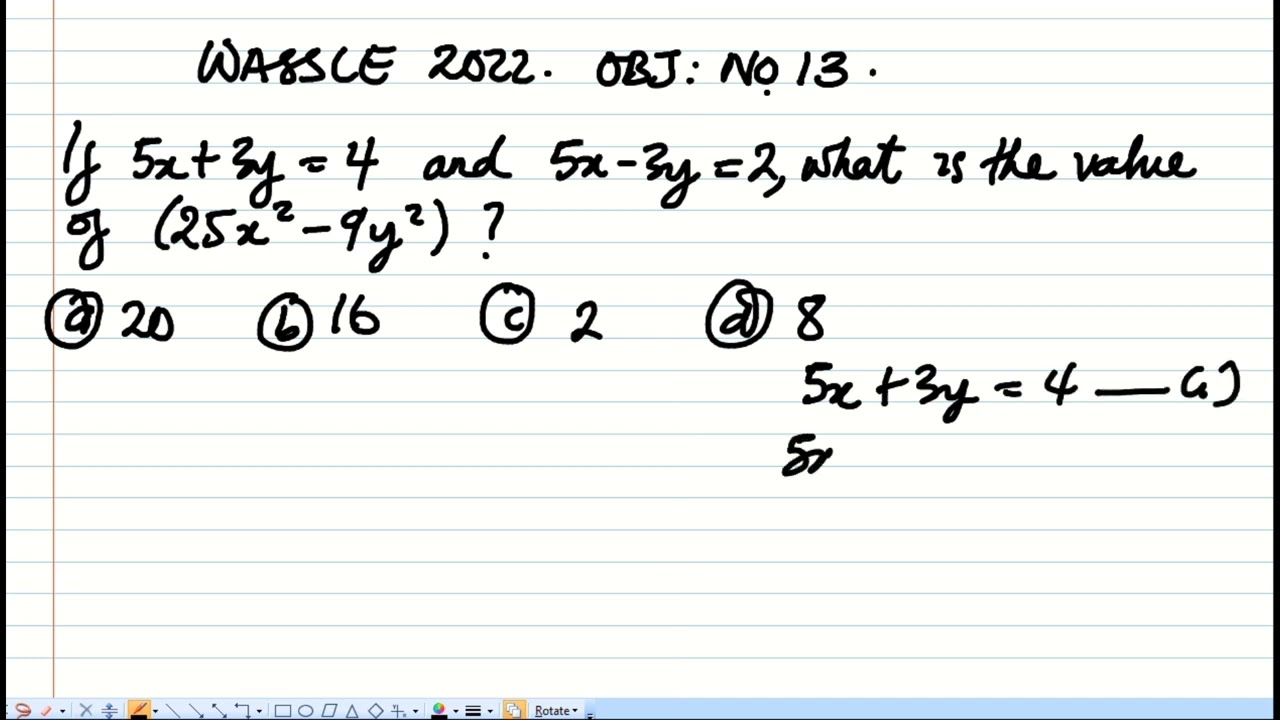 WASSCE 2022. OBJ: No 13.
If 5x + 3y = 4 and 5x - 3y = 2, what is the value
of (25x² - 9y²) ?
(a) 20 (b) 16 (c) 2 (d) 8
5x + 3y = 4 —
5x
Rotate